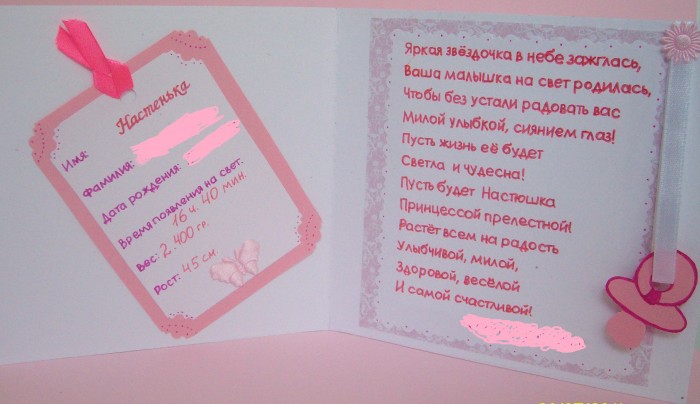 Настенька
Имя:
Фамилия:
Дата рождения:
Время появления на свет:
16 ч. 40 мин.
Вес: 2.400 гр.
Рост: 45 см
Яркая звёздочка в небе зажглась,
Ваша малышка на свет родилась,
Чтобы без устали радовать вас
Милой улыбкой, сиянием глаз!
Пусть жизнь её будет
Светла и чудесна!
Пусть будет Настюшка
Принцессой прелестной!
Растёт всем на радость
Улыбчивой, милой,
Здоровой, весёлой
И самой счастливой!